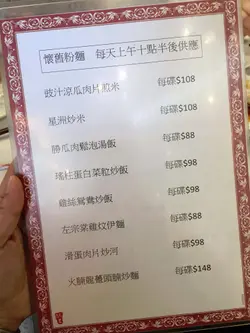 懷舊粉麵 每天上午十點半後供應
豉汁涼瓜肉片煎米 每碟$108
星洲炒米 每碟$108
勝瓜肉鬆泡湯飯 每碟$88
瑤柱蛋白菜粒炒飯 每碟$98
雞絲鴛鴦炒飯 每碟$98
左宗棠雞炆伊麵 每碟$88
滑蛋肉片炒河 每碟$98
火腩龍躉頭腩炒麵 每碟$148